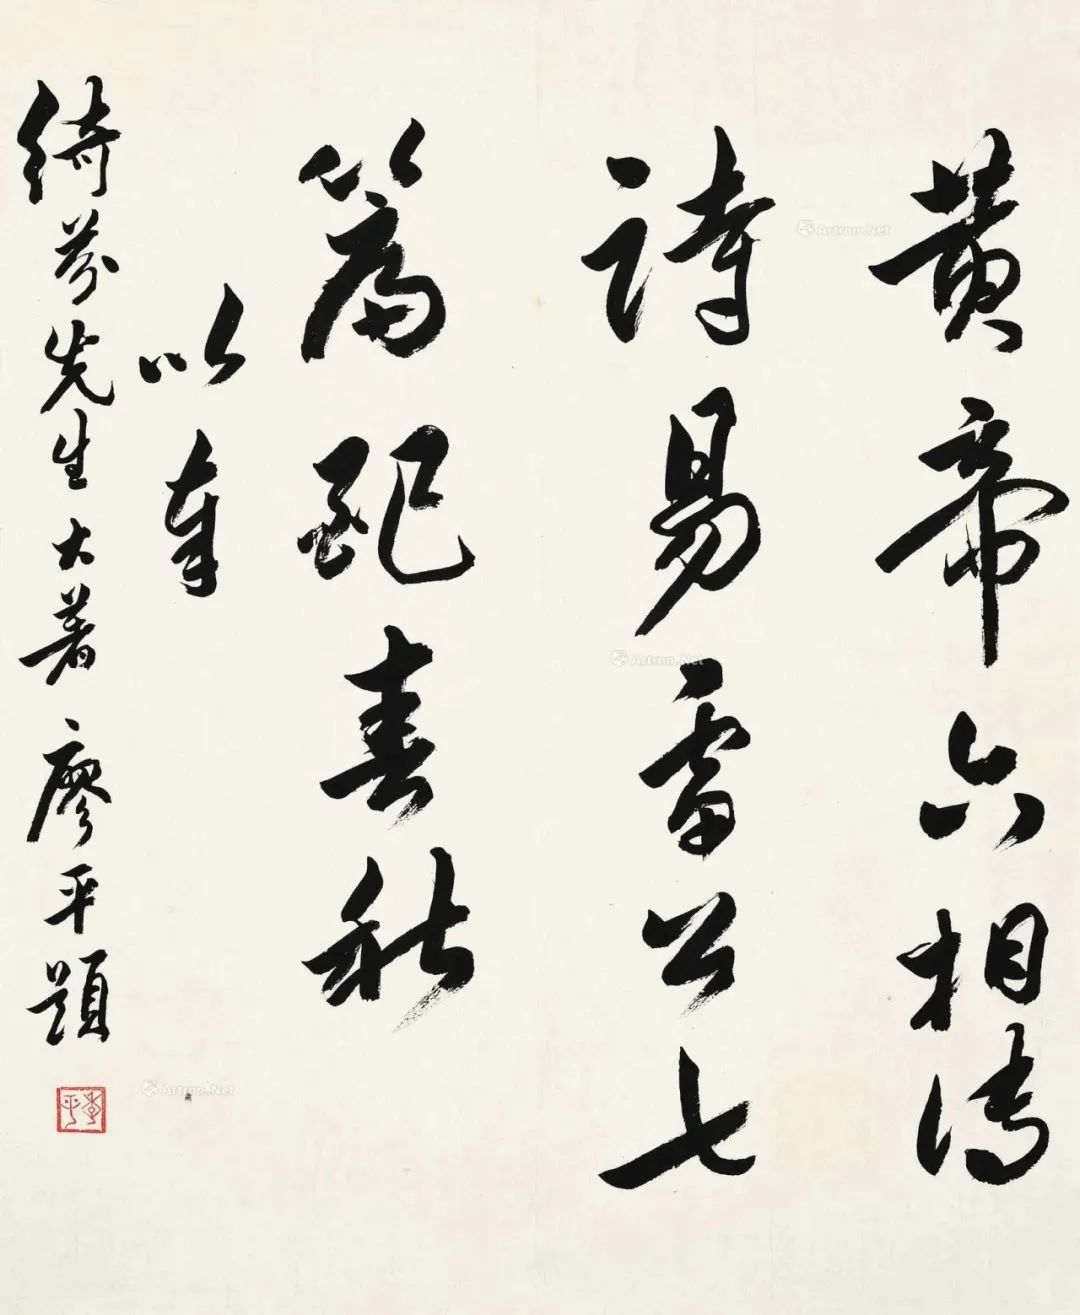 黃帝六相傳
詩易雷公七
篇配春秋
以奉
綺芬先生大著 廖平題
季平
Artron.Net
Artron.Net
Artron.Net